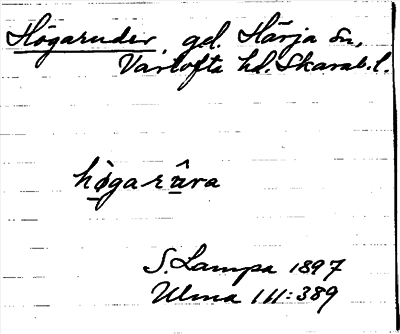 Högaruder, gd. Härja sn,
Vartofta hd. Skarab. l.
hø̱garâ̱va
S. Lampa 1897
Ulma 111:389